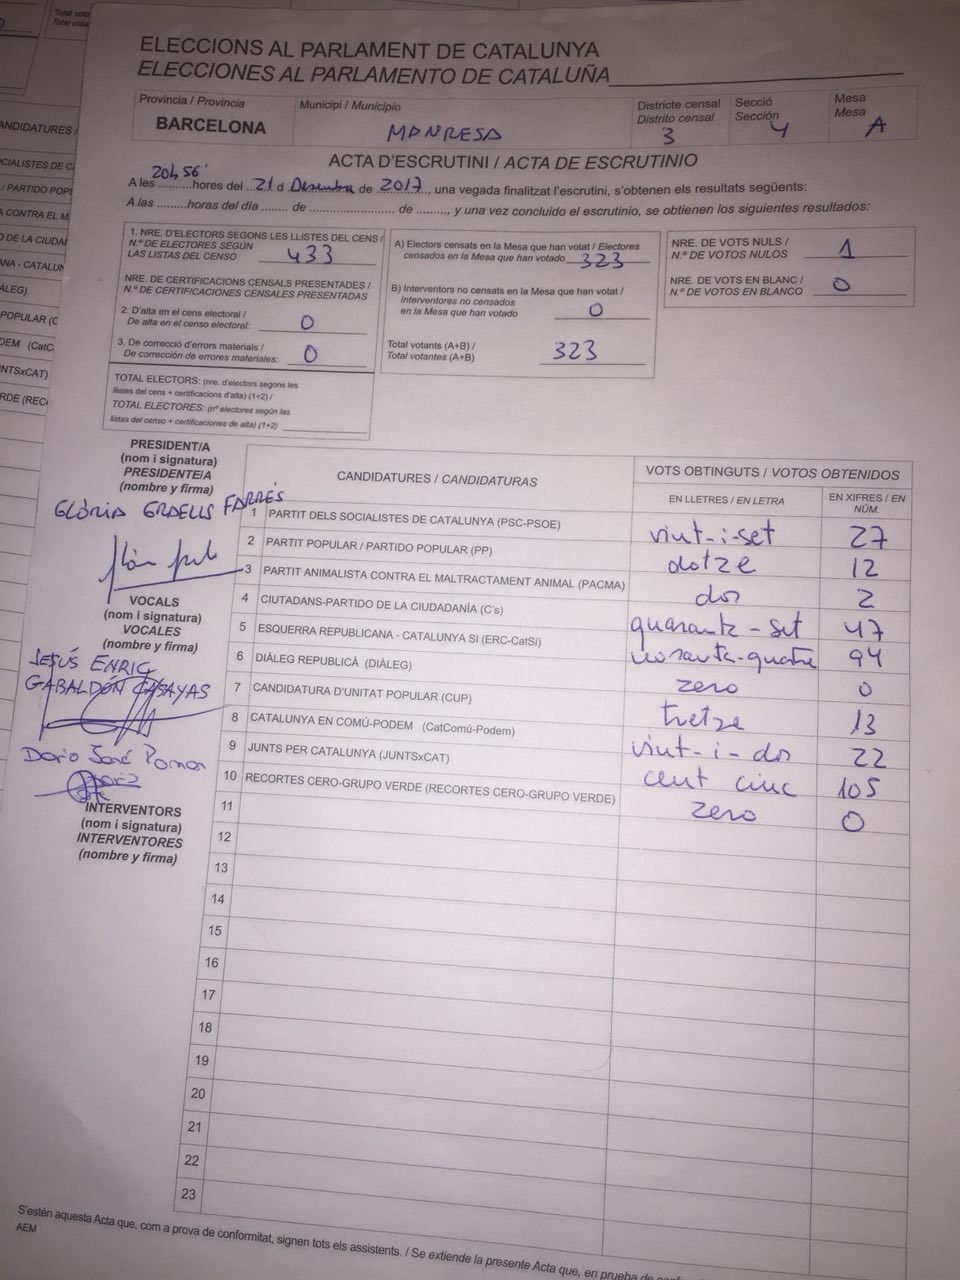 Total vota
Total vota
ANDIDATURES /
CIALISTES DE C
/ PARTIDO POP
A CONTRA EL M
O DE LA CIUDA
ANA - CATALUN
ÀLEG)
POPULAR (C
DEM (CatC
NTSxCAT)
RDE (REC
ELECCIONS AL PARLAMENT DE CATALUNYA
ELECCIONES AL PARLAMENTO DE CATALUÑA
Província / Provincia
BARCELONA
Municipi / Municipio
MANRESA
Districte censal
Distrito censal
3
Secció
Sección
4
Mesa
Mesa
A
ACTA D'ESCRUTINI / ACTA DE ESCRUTINIO
A les 20h 56' hores del 21 d Desembre de 2017, una vegada finalitzat l'escrutini, s'obtenen els resultats següents:
A las .........horas del día ........ de ......................... de ........., y una vez concluido el escrutinio, se obtienen los siguientes resultados:
1. NRE. D'ELECTORS SEGONS LES LLISTES DEL CENS /
N.º DE ELECTORES SEGÚN
LAS LISTAS DEL CENSO 433
NRE. DE CERTIFICACIONS CENSALS PRESENTADES /
N.º DE CERTIFICACIONES CENSALES PRESENTADAS
2. D'alta en el cens electoral /
De alta en el censo electoral: 0
3. De correcció d'errors materials /
De corrección de errores materiales: 0
TOTAL ELECTORS: (nre. d'electors segons les
llistes del cens + certificacions d'alta) (1+2) /
TOTAL ELECTORES: (nº electores según las
listas del censo + certificaciones de alta) (1+2)
A) Electors censats en la Mesa que han votat / Electores
censados en la Mesa que han votado 323
B) Interventors no censats en la Mesa que han votat /
Interventores no censados
en la Mesa que han votado 0
Total votants (A+B) /
Total votantes (A+B) 323
NRE. DE VOTS NULS /
N.º DE VOTOS NULOS 1
NRE. DE VOTS EN BLANC /
N.º DE VOTOS EN BLANCO 0
PRESIDENT/A
(nom i signatura)
PRESIDENTE/A
(nombre y firma)
GLÒRIA GRAELLS FARRÉS
VOCALS
(nom i signatura)
VOCALES
(nombre y firma)
JESÚS ENRIC
GABALDÓN CASAYAS
Dario José
INTERVENTORS
(nom i signatura)
INTERVENTORES
(nombre y firma)
CANDIDATURES / CANDIDATURAS
VOTS OBTINGUTS / VOTOS OBTENIDOS
EN LLETRES / EN LETRA
EN XIFRES / EN
NÚM.
1 PARTIT DELS SOCIALISTES DE CATALUNYA (PSC-PSOE) vint-i-set 27
2 PARTIT POPULAR / PARTIDO POPULAR (PP) dotze 12
3 PARTIT ANIMALISTA CONTRA EL MALTRACTAMENT ANIMAL (PACMA) dos 2
4 CIUTADANS-PARTIDO DE LA CIUDADANÍA (C's) quaranta-set 47
5 ESQUERRA REPUBLICANA - CATALUNYA SI (ERC-CatSí) noranta-quatre 94
6 DIÀLEG REPUBLICÀ (DIÀLEG) zero 0
7 CANDIDATURA D'UNITAT POPULAR (CUP) tretze 13
8 CATALUNYA EN COMÚ-PODEM (CatComú-Podem) vint-i-dos 22
9 JUNTS PER CATALUNYA (JUNTSxCAT) cent cinc 105
10 RECORTES CERO-GRUPO VERDE (RECORTES CERO-GRUPO VERDE) zero 0
11
12
13
14
15
16
17
18
19
20
21
22
23
S'estén aquesta Acta que, com a prova de conformitat, signen tots els assistents. / Se extiende la presente Acta que, en prueba de
AEM